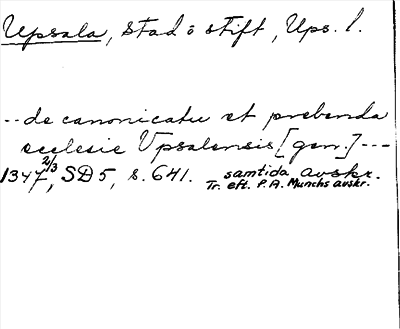 Upsala, Stad o stift, Ups. l.
-- de canonicatu et prebenda
ecclesie Vpsalensis [gen.] ---
1347 2/3, SD 5, s. 641. samtida avskr.
Tr. eft. P. A. Munchs avskr.